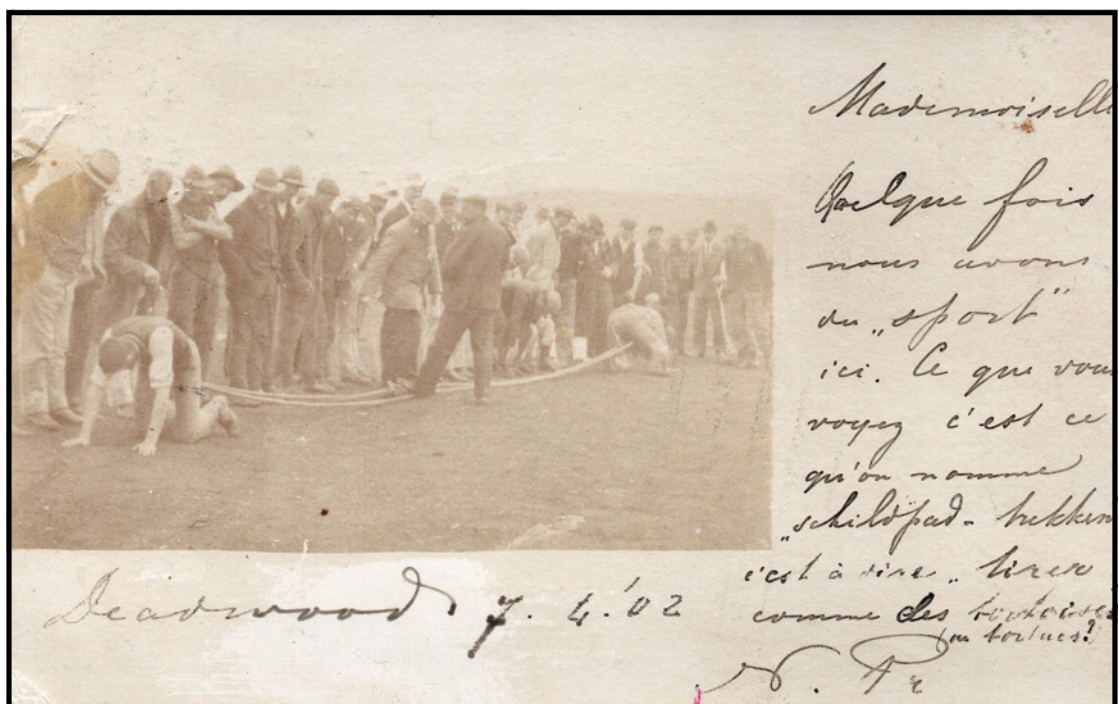 Mademoiselle
Quelque fois
nous avons
du „sport”
ici. Ce que vous
voyez c'est ce
qu'on nomme
„schildpad-trekken
c'est à dire „tirer
comme des tortoises
(ou tortues?)
N. Pr
Deadwood. 7. 4.'02